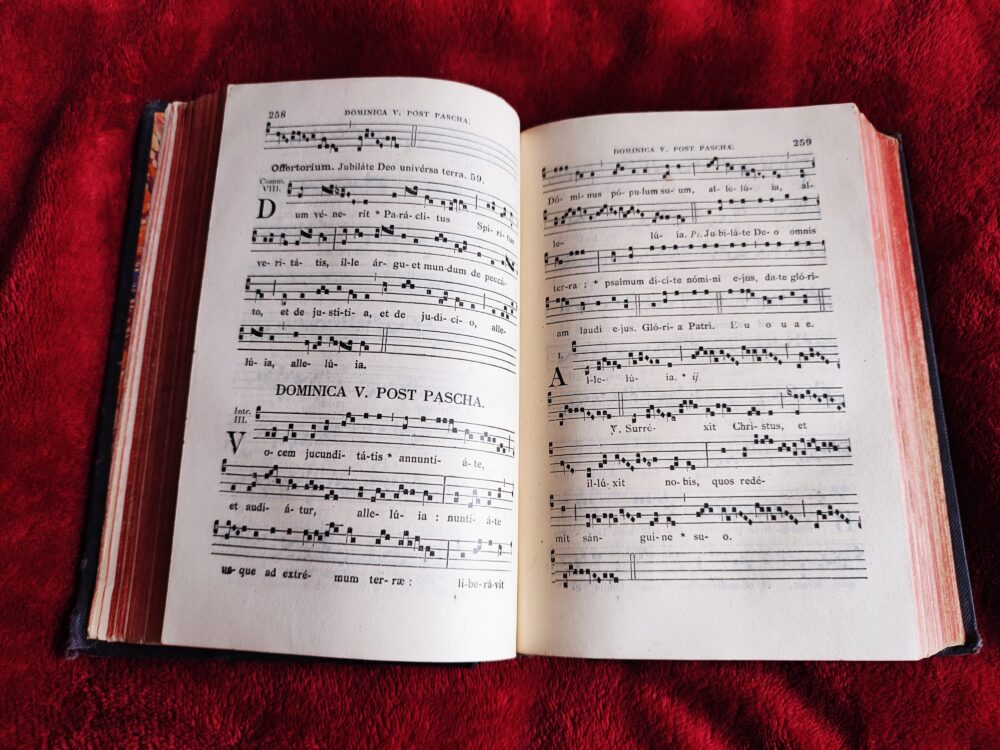 258
DOMINICA V. POST PASCHA.
Offertorium. Jubiláte Deo univérsa terra. 59.
Comm.
VIII.
D um vé-ne-rit * Pa-rá-cli-tus Spi-ri-tus
ve-ri-tá-tis, il-le ár-gu-et mun-dum de peccá-
to, et de ju-stí-ti-a, et de ju-dí-ci-o, alle-
lú-ia, alle-lú-ia.
DOMINICA V. POST PASCHA.
Intr.
III.
V o-cem jucundi-tá-tis * annunti-á-te,
et audi-á-tur, alle-lú-ia : nunti-á-te
us-que ad extré-mum ter-ræ : li-be-rá-vit
DOMINICA V. POST PASCHA.
259
Dó-mi-nus pó-pu-lum su-um, al-le-lú-ia, al-
le-lú-ia. Ps. Ju-bi-lá-te De-o omnis
terra : * psalmum dí-ci-te nómi-ni e-jus, da-te gló-ri-
am laudi e-jus. Gló-ri-a Patri. E u o u a e.
1.
A l-le-lú-ia. * ij.
℣. Surré-xit Chri-stus, et
il-lú-xit no-bis, quos redé-
mit sán-gui-ne * su-o.